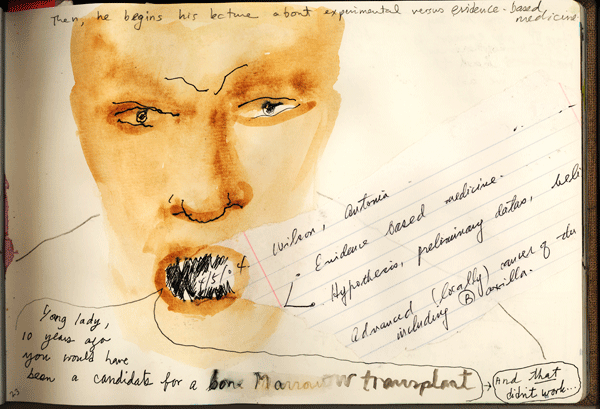 Then, he begins his lecture about experimental versus evidence-based
medicine
Wilson, Antonia
Evidence based medicine.
Hypothesis, preliminary datas, beli
Advanced (locally) cancer of the
including B axilla.
Yong lady,
10 years ago
you would have
been a candidate for a bone Marrow transplant
And that
didn't work...